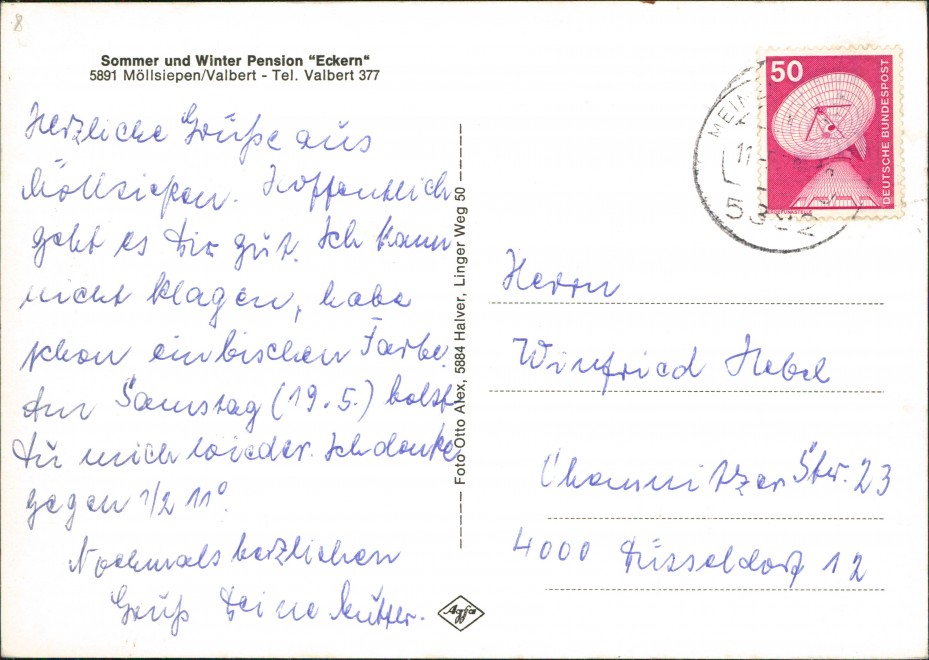 8
Sommer und Winter Pension "Eckern"
5891 Möllsiepen/Valbert - Tel. Valbert 377
Herzliche Grüße aus
Möllsiepen. Hoffentlich
geht es Dir gut. Ich kann
nicht klagen, habe
schon ein bischen Farbe.
Am Samstag (19.5.) holst
Du mich wieder. Ich denke
gegen 1/2 11°.
Nochmals herzlichen
Gruß Deine Mutter.
Foto Otto Alex, 5884 Halver, Linger Weg 50
Agfa
50
DEUTSCHE BUNDESPOST
MEIN
11
Herrn
Winfried Hebel
Chemnitzer Str. 23
4000 Düsseldorf 12